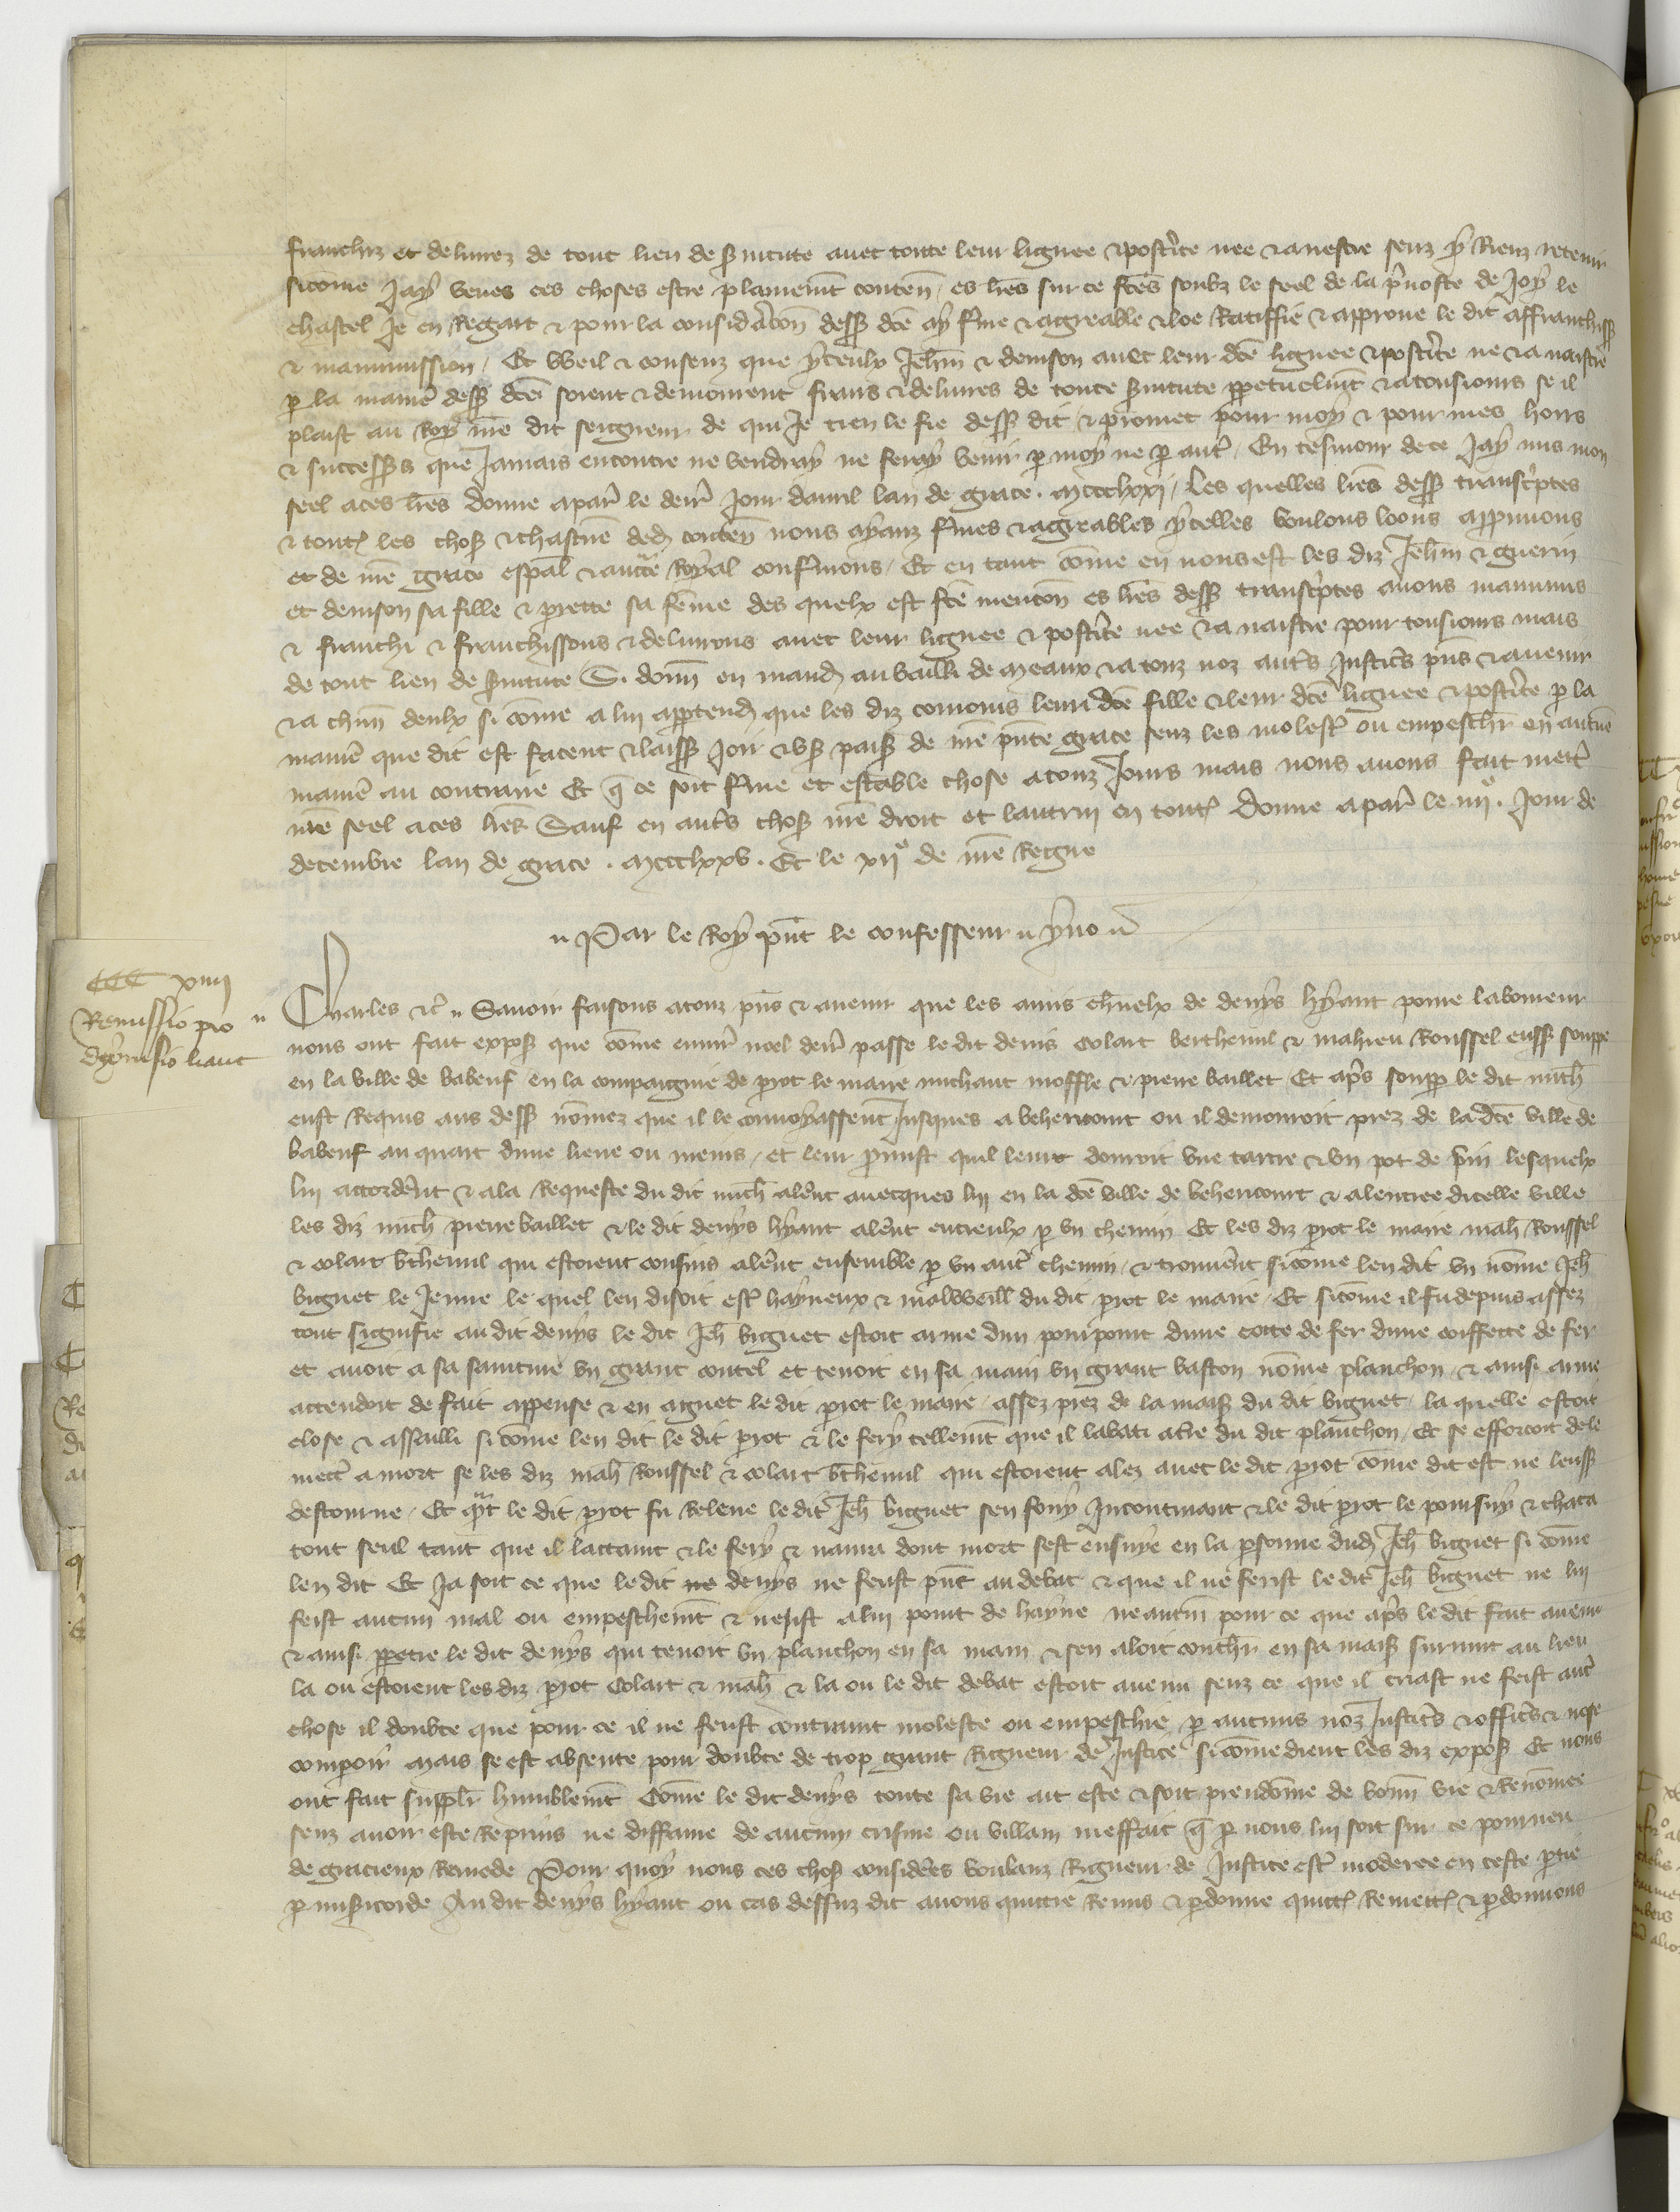 franchiz et delivrez de tout lien de svitute avec toute leur lignee & postite nee & a nestre senz y Riens retenir
sicome Jay veues ces choses estre plainemt conten es lres sur ce fces soubz le seel de la pvoste de Joy le
chastel Je en Regart & pour la considacon dess dce ay fme & agreable & loe Ratiffie & approve le dit affranchiss
& manumission / Et Weil & consenz que yceulx Jehn & denison avec leur dce lignee & postite ne & a naistre
p la manie dess dce soient & demeurent frans & delivres de toute svitute ppetuelmt & a tousiours se il
plaist au Roy me dit seigneur de qui Je tien le fie dess dit & promet pour moy & pour mes hoirs
& success que Jamais encontre ne vendray ne feray venir p moy ne p aut / En tesmoing de ce Jay mis mon
seel a ces lres donne a par le derr Jour davril lan de grace . mccclxxi / Les quelles lres dess transcptes
& tout les chos & chascune ded conten nous ayanz fmes & agreables ycelles voulons loons appruvons
et de nre grace espal & aucte Royal confmons / Et en tant come en nous est les diz Jehn & guerin
et denison sa fille & prette sa feme des quelx est fce mencon es lres dess transcptes avons manumis
& franchi & franchissons & delivrons avec leur lignee & postite nee & a naistre pour tousiours mais
de tout lien de svitute Si donn en mand au bailli de meaux & a touz noz auts Justics pns & avenir
& a chun deulx si come a lui apptend que les diz conioins leur dce fille & leur dce lignee & postite p la
manie que dit est facent & laiss Joir & us pais de nre pnte grace senz les molest ou empeschr en aucune
manie au contraire Et q ce soit fme et estable chose a touz Jours mais nous avons fait mett
nre seel a ces lres Sauf en auts chos nre droit et lautruy en tout Donne a par le iiiie . Jour de
decembre lan de grace . mccclxxv . Et le xiie de nre Regne
Par le Roy pnt le confesseur yvo
CCC xiiii
Remissio pro
dyonisio hiant
Charles &c Savoir faisons a touz pns & avenir que les amis chnelx de denys hyant povre laboureur
nous ont fait expos que come envir noel derr passe le dit denis colart bertheuil & mahieu Roussel euss souppe
en la ville de babeuf en la compaignie de piot le maire michaut moffle & pierre baillet Et aps soupp le dit mich
eust Requis aus dess nomez que il le convoyassent Jusques a behericourt ou il demouroit prez de la dce ville de
babeuf au quart dune lieue ou meins / et leur pmist quil leur donroit une tarte & un pot de vin lesquelx
lui accordent & a la Requeste du dit mich alent avecques lui en la dce ville de behericourt & a lentree dicelle ville
les diz mich pierre baillet & le dit denys hyant alent entreulx p un chemin Et les diz piot le maire mah Roussel
& colart btheuil qui estoient cousins alent ensemble p un aut chemin / & trouvent sicome len dit un nome Jeh
biguet le Jeune le quel len disoit est hayneux & malveill du dit piot le maire / Et sicome il fu depuis assez
tout signifie au dit denys le dit Jeh biguet estoit arme dun pourpoint dune cotte de fer dune coiffette de fer
et avoit a sa sainture un grant coutel et tenoit en sa main un grant baston nome planchon / & ainsi arme
attendoit de fait appense & en aguet le dit piot le maire / assez prez de la mais du dit biguet / la quelle estoit
close & assailli si come len dit le dit piot & le fery tellemt que il labati a tre du dit planchon / Et se efforcoit de le
mett a mort se les diz mah Roussel & colart btheuil qui estoient alez avec le dit piot come dit est ne leuss
destourne / Et qnt le dit piot fu Releve le dit Jeh biguet sen fouy Incontinant & le dit piot le poursuy & chaca
tout seul tant que il lattaint & le fery & navra dont mort sest ensuye en la psonne dud Jeh biguet si come
len dit Et Ja soit ce que le dit ne denys ne feust pnt au debat & que il ne ferist le dit Jeh biguet ne lui
feist aucun mal ou empeschemt & neust a lui point de hayne neantm pour ce que aps le dit fait avenu
& ainsi ppetre le dit denys qui tenoit un planchon en sa main & sen aloit couchr en sa mais survint au lieu
la ou estoient les diz piot colart & mah & la ou le dit debat estoit avenu senz ce que il criast ne feist aut
chose il doubte que pour ce il ne feust contraint moleste ou empeschie p aucuns noz Justics & offics & nose
compoir Mais se est absente pour doubte de trop grant Rigueur de Justice si come dient les diz expos Et nous
ont fait supplr humblemt Come le dit denys toute sa vie ait este & soit preudome de bonn vie & Renomee
senz avoir este Reprins ne diffame de aucun crisme ou villain meffait q p nous lui soit sur ce pourveu
de gracieux Remede Pour quoy nous ces chos considees voulanz Rigueur de Justice est moderee en ceste ptie
p misicorde Au dit denys hyant ou cas dessuz dit avons quitte Remis & pdonne quitt Remett & pdonnons